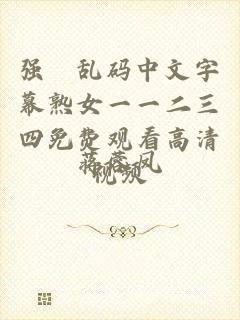 强 乱码中文字
幕熟女一一二三
四免费观看高清
视频
蒋蓉风